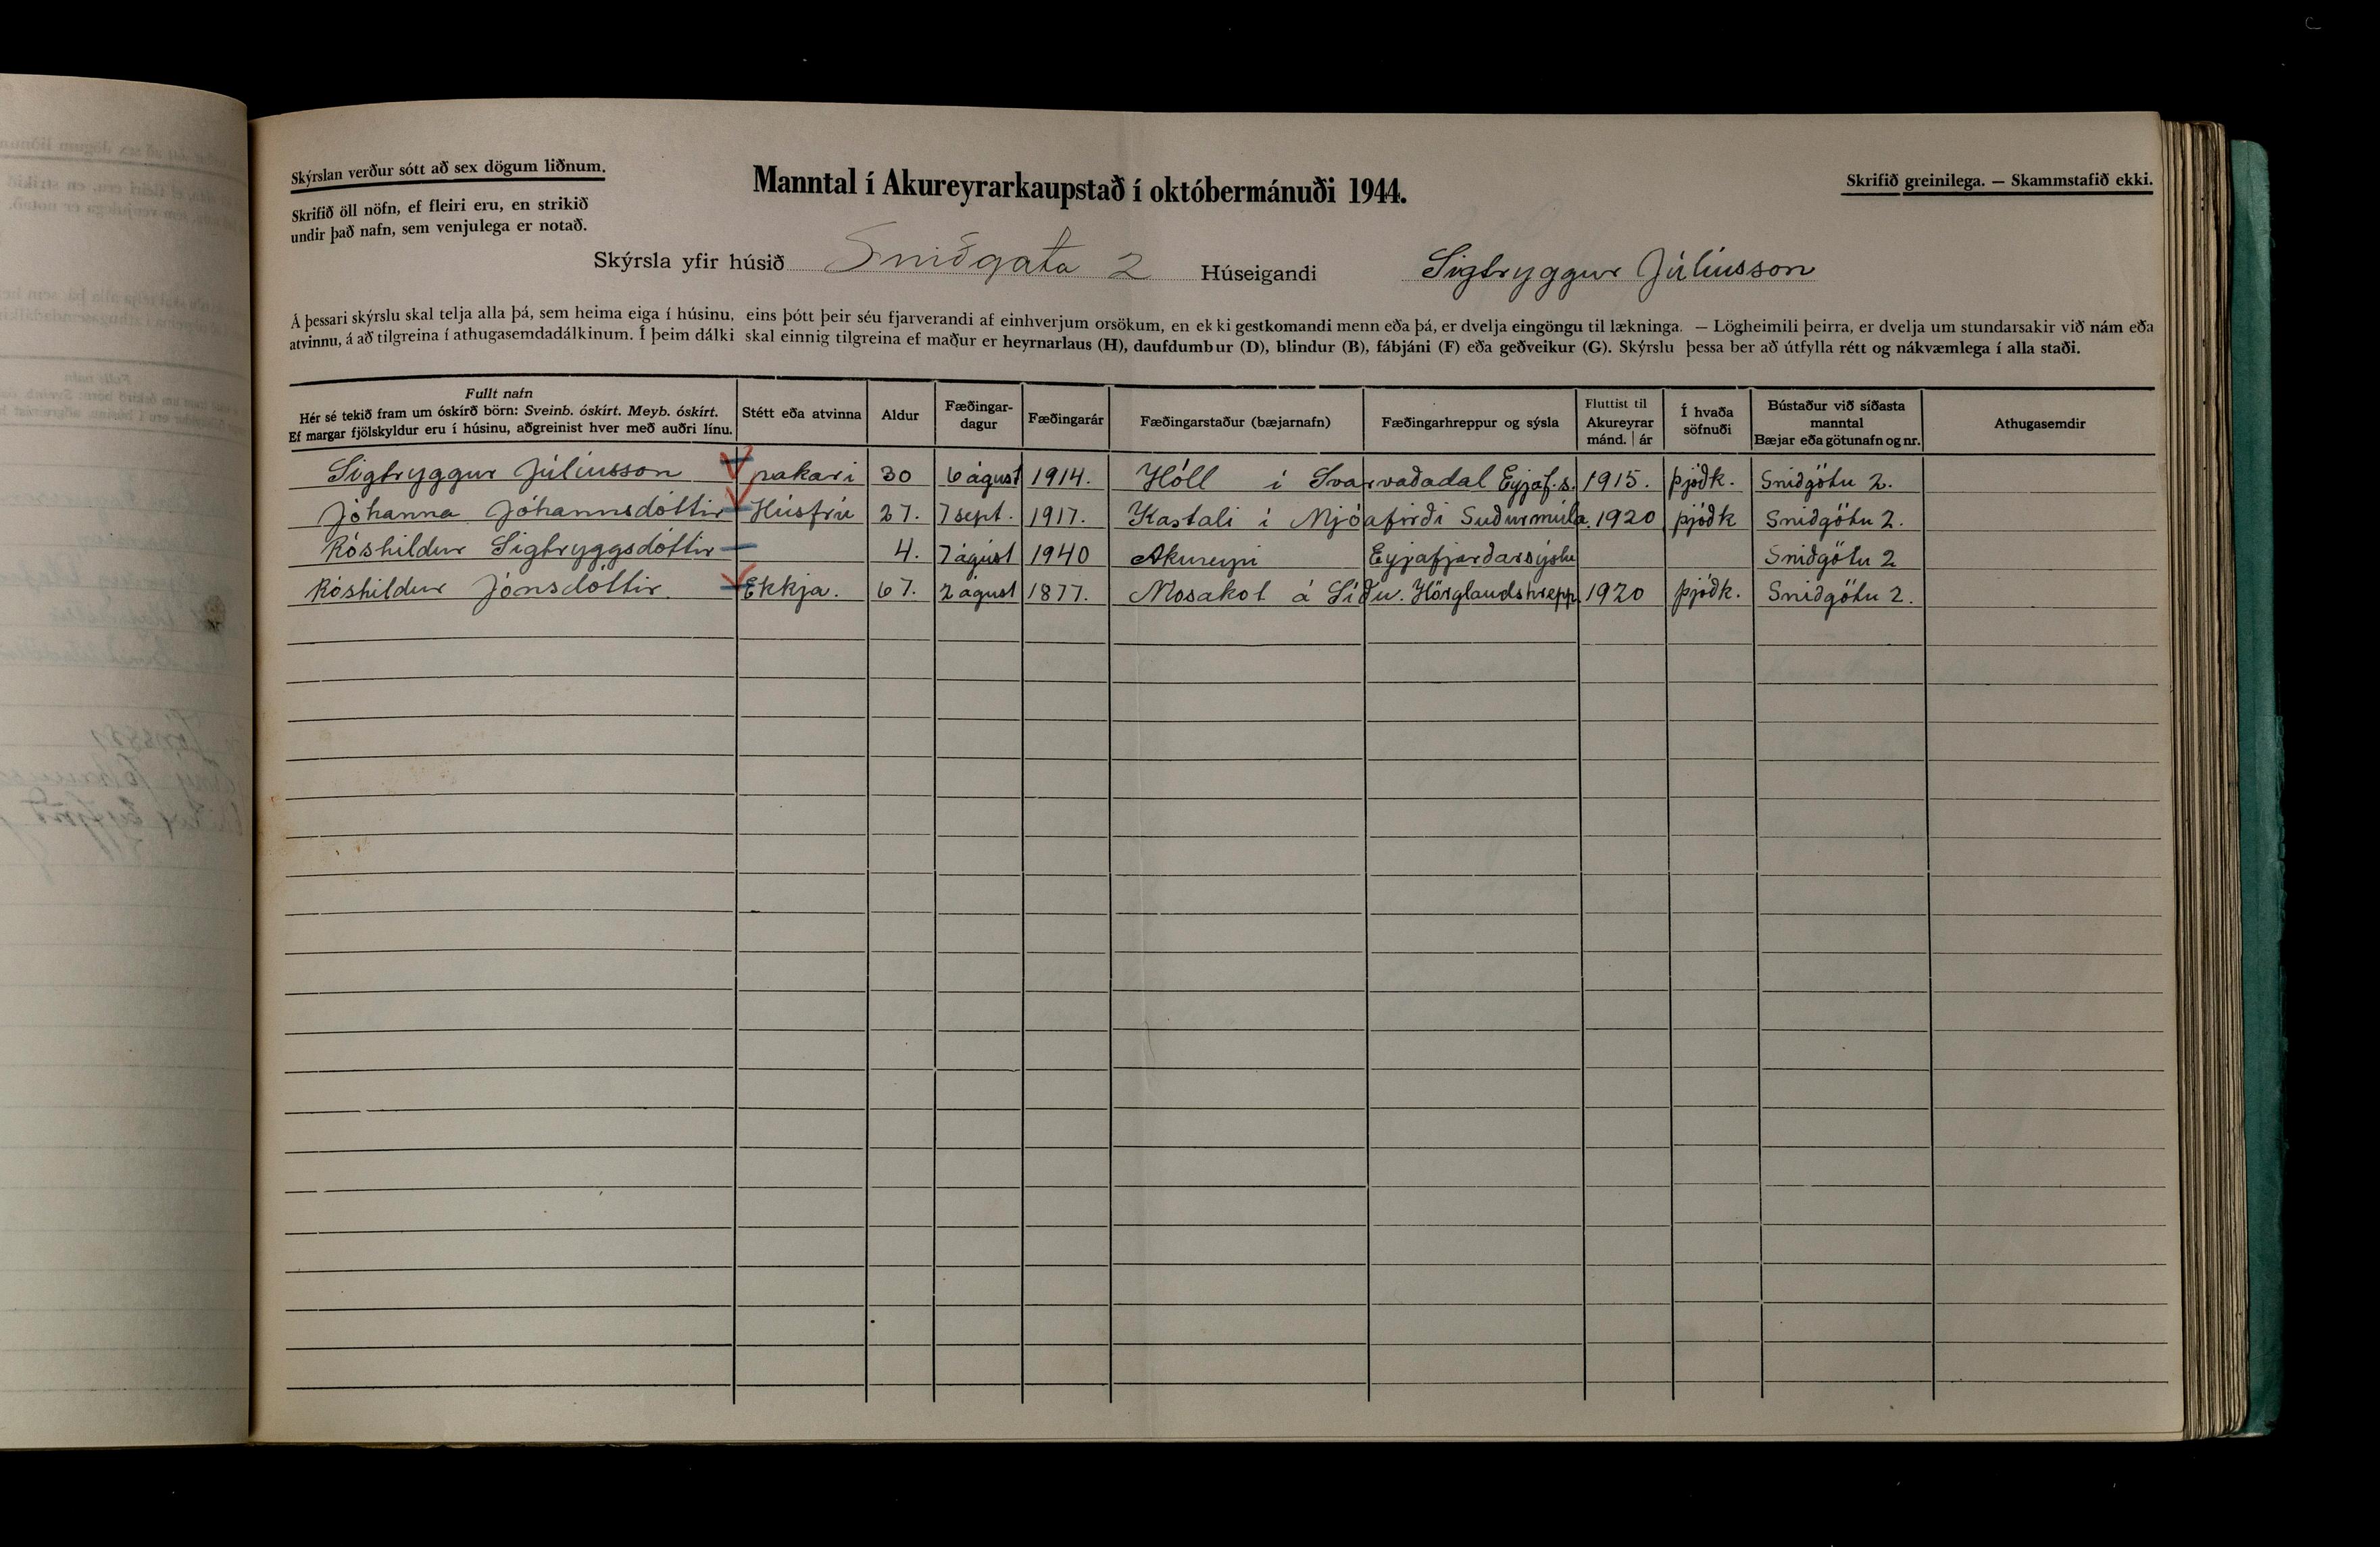 Skýrslan verður sótt að sex dögum liðnum.
Skrifið öll nöfn, ef fleiri eru, en strikið
undir það nafn, sem venjulega er notað.
Manntal í Akureyrarkaupstað í októbermánuði 1944.
Skrifið greinilega. — Skammstafið ekki.
Skýrsla yfir húsið Sniðgata 2 Húseigandi Sigtryggur Júlíusson
Á þessari skýrslu skal telja alla þá, sem heima eiga í húsinu, eins þótt þeir séu fjarverandi af einhverjum orsökum, en ekki gestkomandi menn eða þá, er dvelja eingöngu til lækninga. — Lögheimili þeirra, er dvelja um stundarsakir við nám eða
atvinnu, á að tilgreina í athugasemdadálkinum. Í þeim dálki skal einnig tilgreina ef maður er heyrnarlaus (H), daufdumbur (D), blindur (B), fábjáni (F) eða geðveikur (G). Skýrslu þessa ber að útfylla rétt og nákvæmlega í alla staði.
Fullt nafn
Hér sé tekið fram um óskírð börn: Sveinb. óskírt. Meyb. óskírt.
Ef margar fjölskyldur eru í húsinu, aðgreinist hver með auðri línu.
Stétt eða atvinna
Aldur
Fæðingar-
dagur
Fæðingarár
Fæðingarstaður (bæjarnafn)
Fæðingarhreppur og sýsla
Fluttist til
Akureyrar
mánd. | ár
Í hvaða
söfnuði
Bústaður við síðasta
manntal
Bæjar eða götunafn og nr.
Athugasemdir
Sigtryggur Júlíusson rakari 30 6 ágúst 1914. Hóll í Svarvaðadal Eyjaf.s. 1915. þjóðk. Sniðgötu 2.
Jóhanna Jóhannsdóttir Húsfrú 27. 7 sept. 1917. Kastali í Mjóafirði Suðurmúla. 1920 þjóðk Sniðgötu 2.
Róshildur Sigtryggsdóttir 4. 7 ágúst 1940 Akureyri Eyjafjarðarsýslu Sniðgötu 2
Róshildur Jónsdóttir. Ekkja. 67. 2 ágúst 1877. Mosakot á Síðu. Hörglandshrepp 1920 þjóðk. Sniðgötu 2.